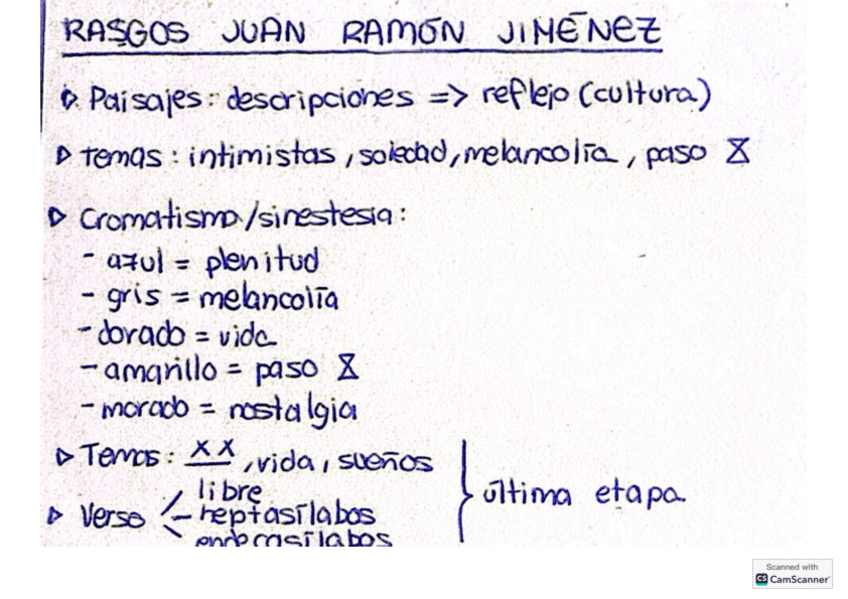 RASGOS JUAN RAMÓN JIMÉNEZ
▷ Paisajes: descripciones => reflejo (cultura)
▷ temas: intimistas, soledad, melancolía, paso ⌛
▷ Cromatismo/sinestesia:
- azul = plenitud
- gris = melancolía
- dorado = vida
- amarillo = paso ⌛
- morado = nostalgia
▷ Temas: XX, vida, sueños
▷ Verso libre
heptasílabos
endecasílabos
última etapa
Scanned with
CS CamScanner